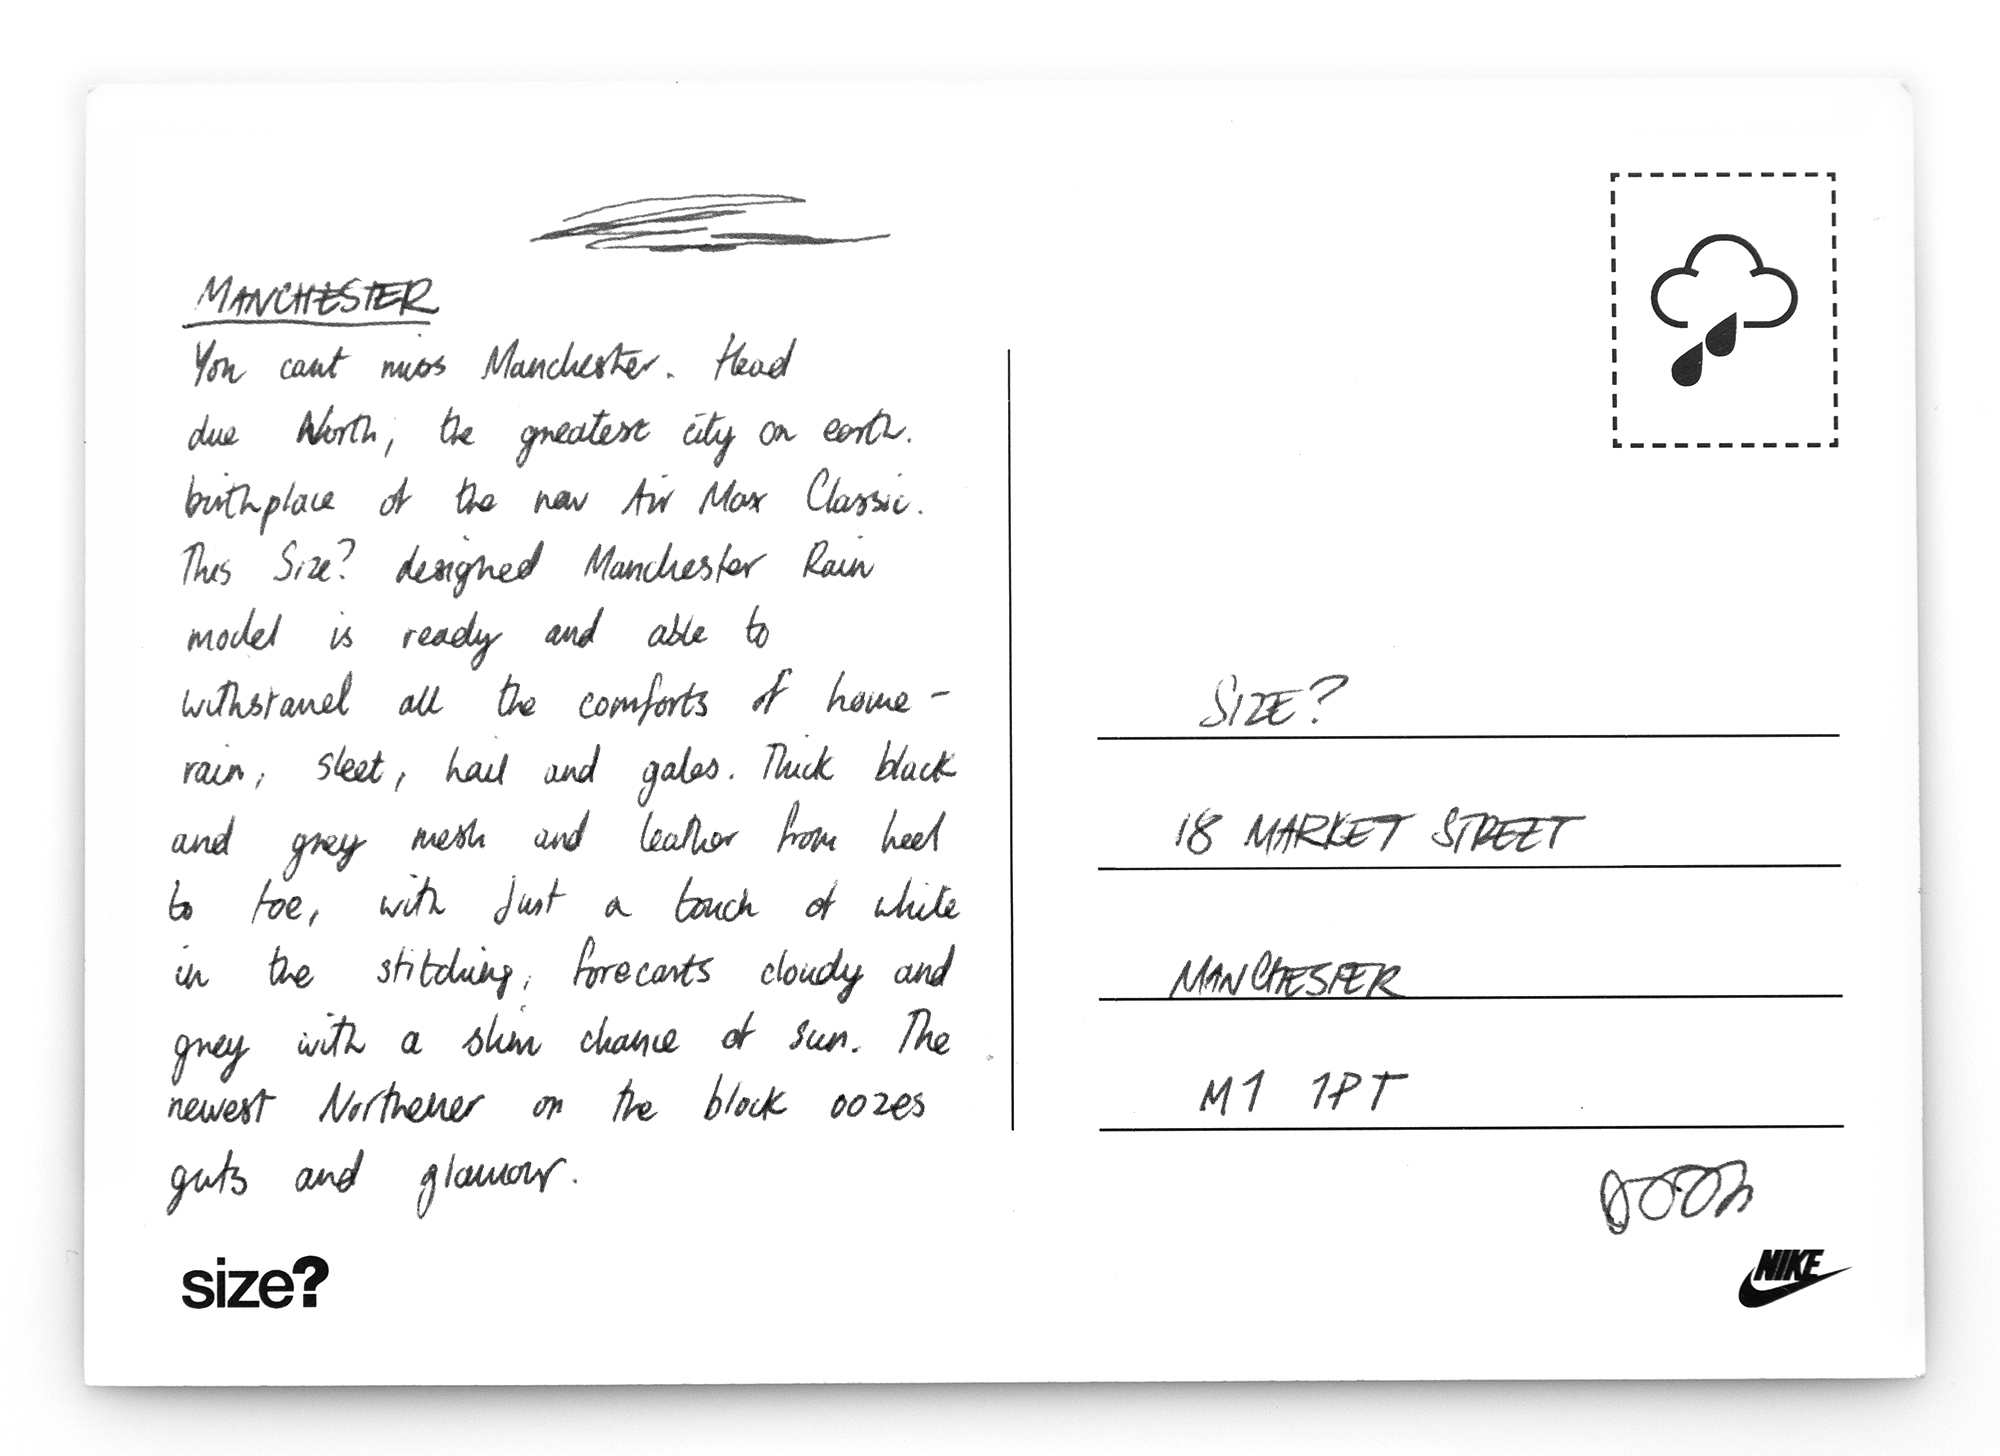 MANCHESTER
You cant miss Manchester. Head
due North, the greatest city on earth.
birthplace of the new Air Max Classic.
This Size? designed Manchester Rain
model is ready and able to
withstand all the comforts of home -
rain, sleet, hail and gales. Thick black
and grey mesh and leather from heel
to toe, with just a touch of white
in the stitching, forecasts cloudy and
grey with a slim chance of sun. The
newest Northener on the block oozes
guts and glamour.
size?
SIZE?
18 MARKET STREET
MANCHESTER
M1 1PT
NIKE